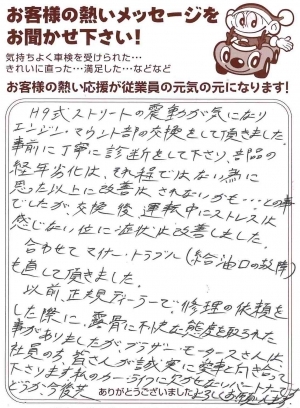 お客様の熱いメッセージを
お聞かせ下さい!
気持ちよく車検を受けられた…
きれいに直った…満足した…などなど
お客様の熱い応援が従業員の元気の元になります!
H9式ストリートの震動が気になり
エンジン・マウント部の交換をして頂きました。
事前に丁寧に診断をして下さり、部品の
経年劣化は、それ程ではない為に
思った以上に改善はされないかも…との事
でしたが、交換後、運転中にストレスは
感じない位に症状は改善しました。
合わせてマイナー・トラブル(給油口の故障)
も直して頂きました。
以前、正規ディーラーで、修理の依頼を
した際に、露骨に不快な態度を取られた
事がありましたが、ブラザー・モータースさんは
社員の方、皆さんが誠実に楽車と向き合って
下さります 私のカーライフに欠かせないパートナーです
どうか今後共よろしくお願いします
ありがとうございました